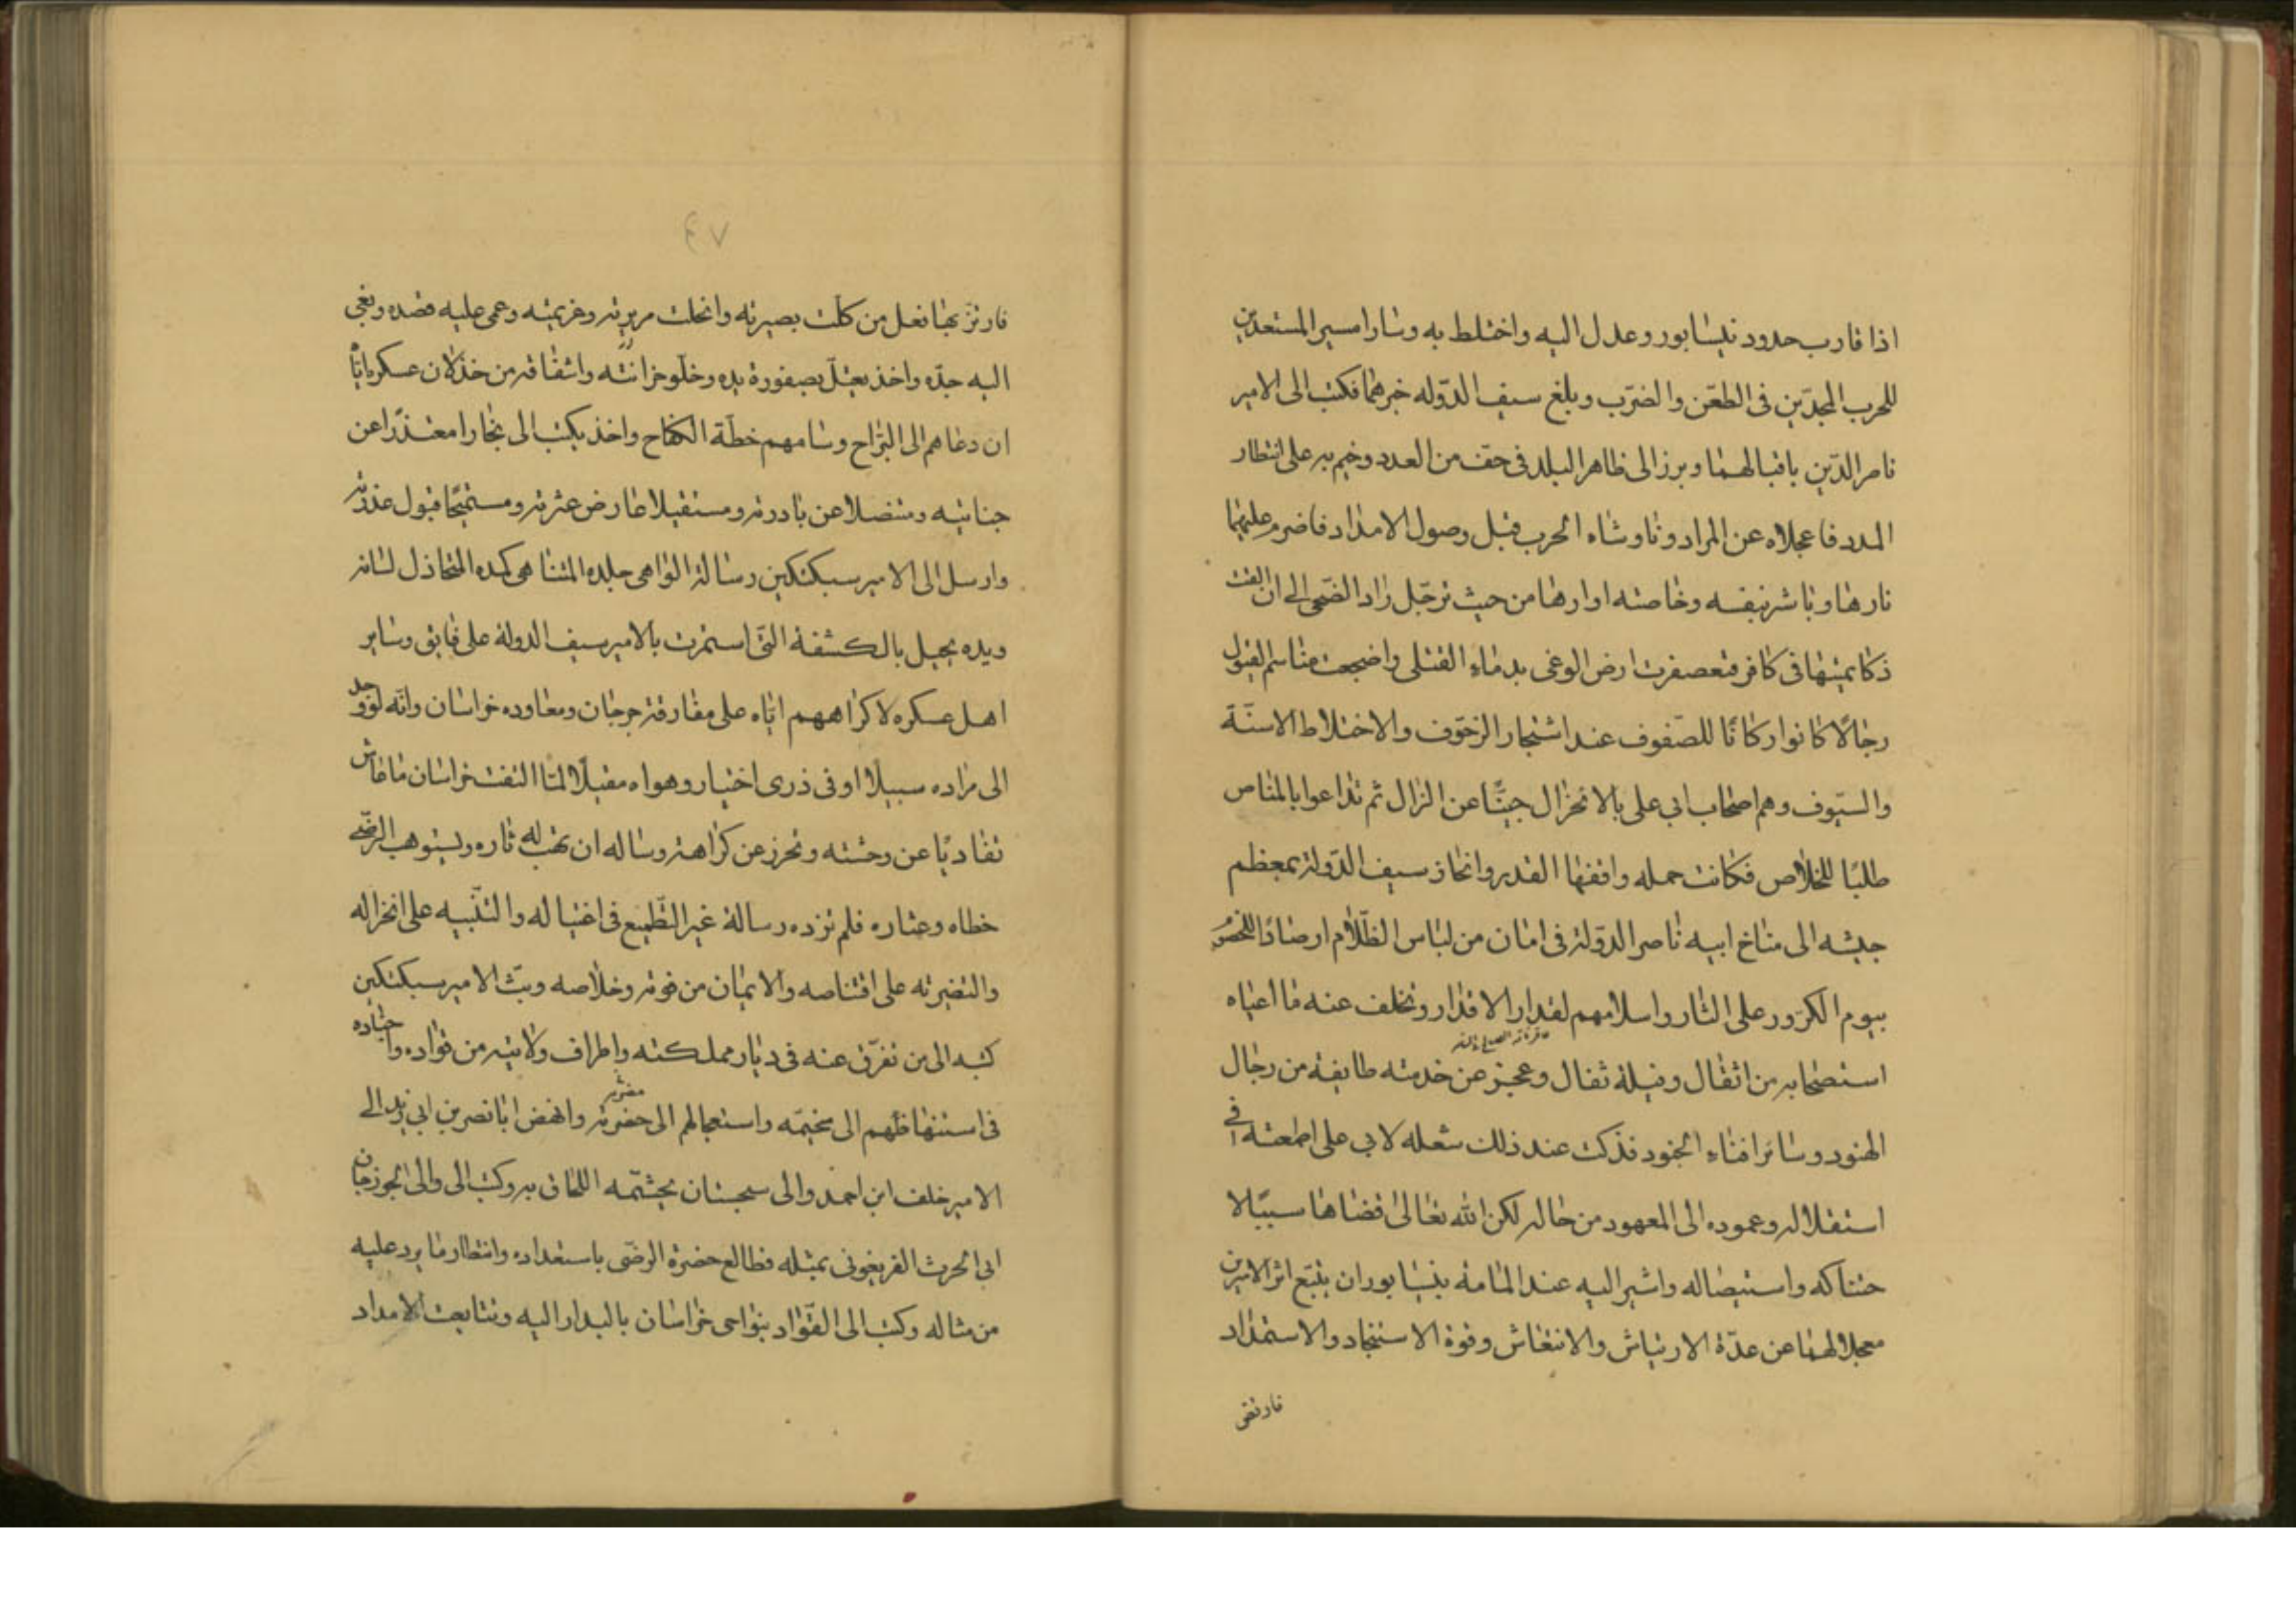 اذا قارب حدود نيسابور وعدل اليه واختلط به وسارا مسير المستعدين
للحرب المجدّين فى الطعن والضرب وبلغ سيف الدّوله خبرهما فكتب الى الامير
ناصر الدّين باقبالهما وبرز الى ظاهر البلد فى حف من العدد وخيم به على انتظار
المدد فاعجلاه عن المراد وناوشاه الحرب قبل وصول الامداد فاضرم عليهما
نارها وباشر بنفسه وخاصته اوارها من حيث ترجّل راد الضّحى الى ان القت
ذكا يمينها فى كافر فتعصفرت ارض الوغى بدماء القتلى واضجعت مناسم الفيول
رجالًا كانوا ركانًا للصّفوف عند اشتجار الزحوف والاختلاط الاسنّة
والسيوف وهم اصحاب ابى على بالانخزال جبنًا عن النزال ثم تداعوا بالمناص
طلبًا للخلاص فكانت حمله وافقها القدر وانحاز سيف الدّولة بمعظم
جيشه الى مناخ ابيه ناصر الدّولة فى امان من لباس الظّلام ارصادًا للخصوم
بيوم الكرور على الثار واسلامهم لقدار الاقدار وتخلف عنه ما اعياه
استصحابه من اثقال وفيلة ثقال وعجز عن خدمته طايفة من رجال
الهنود وسائر افناء الجنود فذكت عند ذلك شعله لابى على اطمعته فى
استقلاله وعموده الى المعهود من حاله لكن الله تعالى قضاها سببًا لا
حتناكه واستيصاله واشير اليه عند المامه بنيسابور ان يتبّع اثر الاميرين
معجلا لهما عن عدّة الارتياش والانتعاش وقوة الاستنجاد والاستمداد
فارتقى
٤٧
فارتزّ بها فعل من كلّت بصيرته وانحلت مريرته وعزيمته وعمى عليه قصده وبغى
اليه جدّه واخذ يعتلّ بصفورة يده وخلو خزانته واشفاقه من خذلان عسكره ايّاه
ان دعاهم الى البراح وسامهم خطّة الكفاح واخذ يكتب الى بخارا معتذرًا عن
جنايته ومتنصلا عن بادرته ومستقيلا عارض عثرته ومستميحًا قبول عذرته
وارسل الى الامير سبكتكين رسالة الواهى جلده المتناهى كمده المتخاذل لسانه
ويده يحيل بالكشفة التى استمرت بالامير سيف الدولة على فايق وساير
اهل عسكره لاكراههم ايّاه على مفارقة جرجان ومعاوده خراسان وانّه لو وجد
الى مراده سبيلًا او فى ذرى اختيار وهواه مقيلًا لما التفت خراسان ما عاش
تفاديًا عن وحشته وتحرز عن كراهته وساله ان يهب له ثاره ويستوهب الرضى
خطاه وعثاره فلم تزده رسالة غير التّطميع فى اغتياله والتّنبيه على انخزاله
والتضريه على اقتناصه والايمان من فوته وخلاصه وبثّ الامير سبكتكين
كتبه الى من تفرّق عنه فى ديار مملكته واطراف ولايته من قوّاده واجناده
فى استنهاضهم الى مخيّمه واستعجالهم الى حضرته وانهض ابا نصر بن ابى زيد الى
الامير خلف ابن احمد والى سجستان يجشّمه اللحاق به وكتب الى والى الجوزجان
ابى الحرث الفريغونى بمثله فطالع حضرة الرضى باستعداده وانتظار ما يرد عليه
من مثاله وكتب الى القوّاد بنواحى خراسان بالبدار اليه وتتابعت الامداد